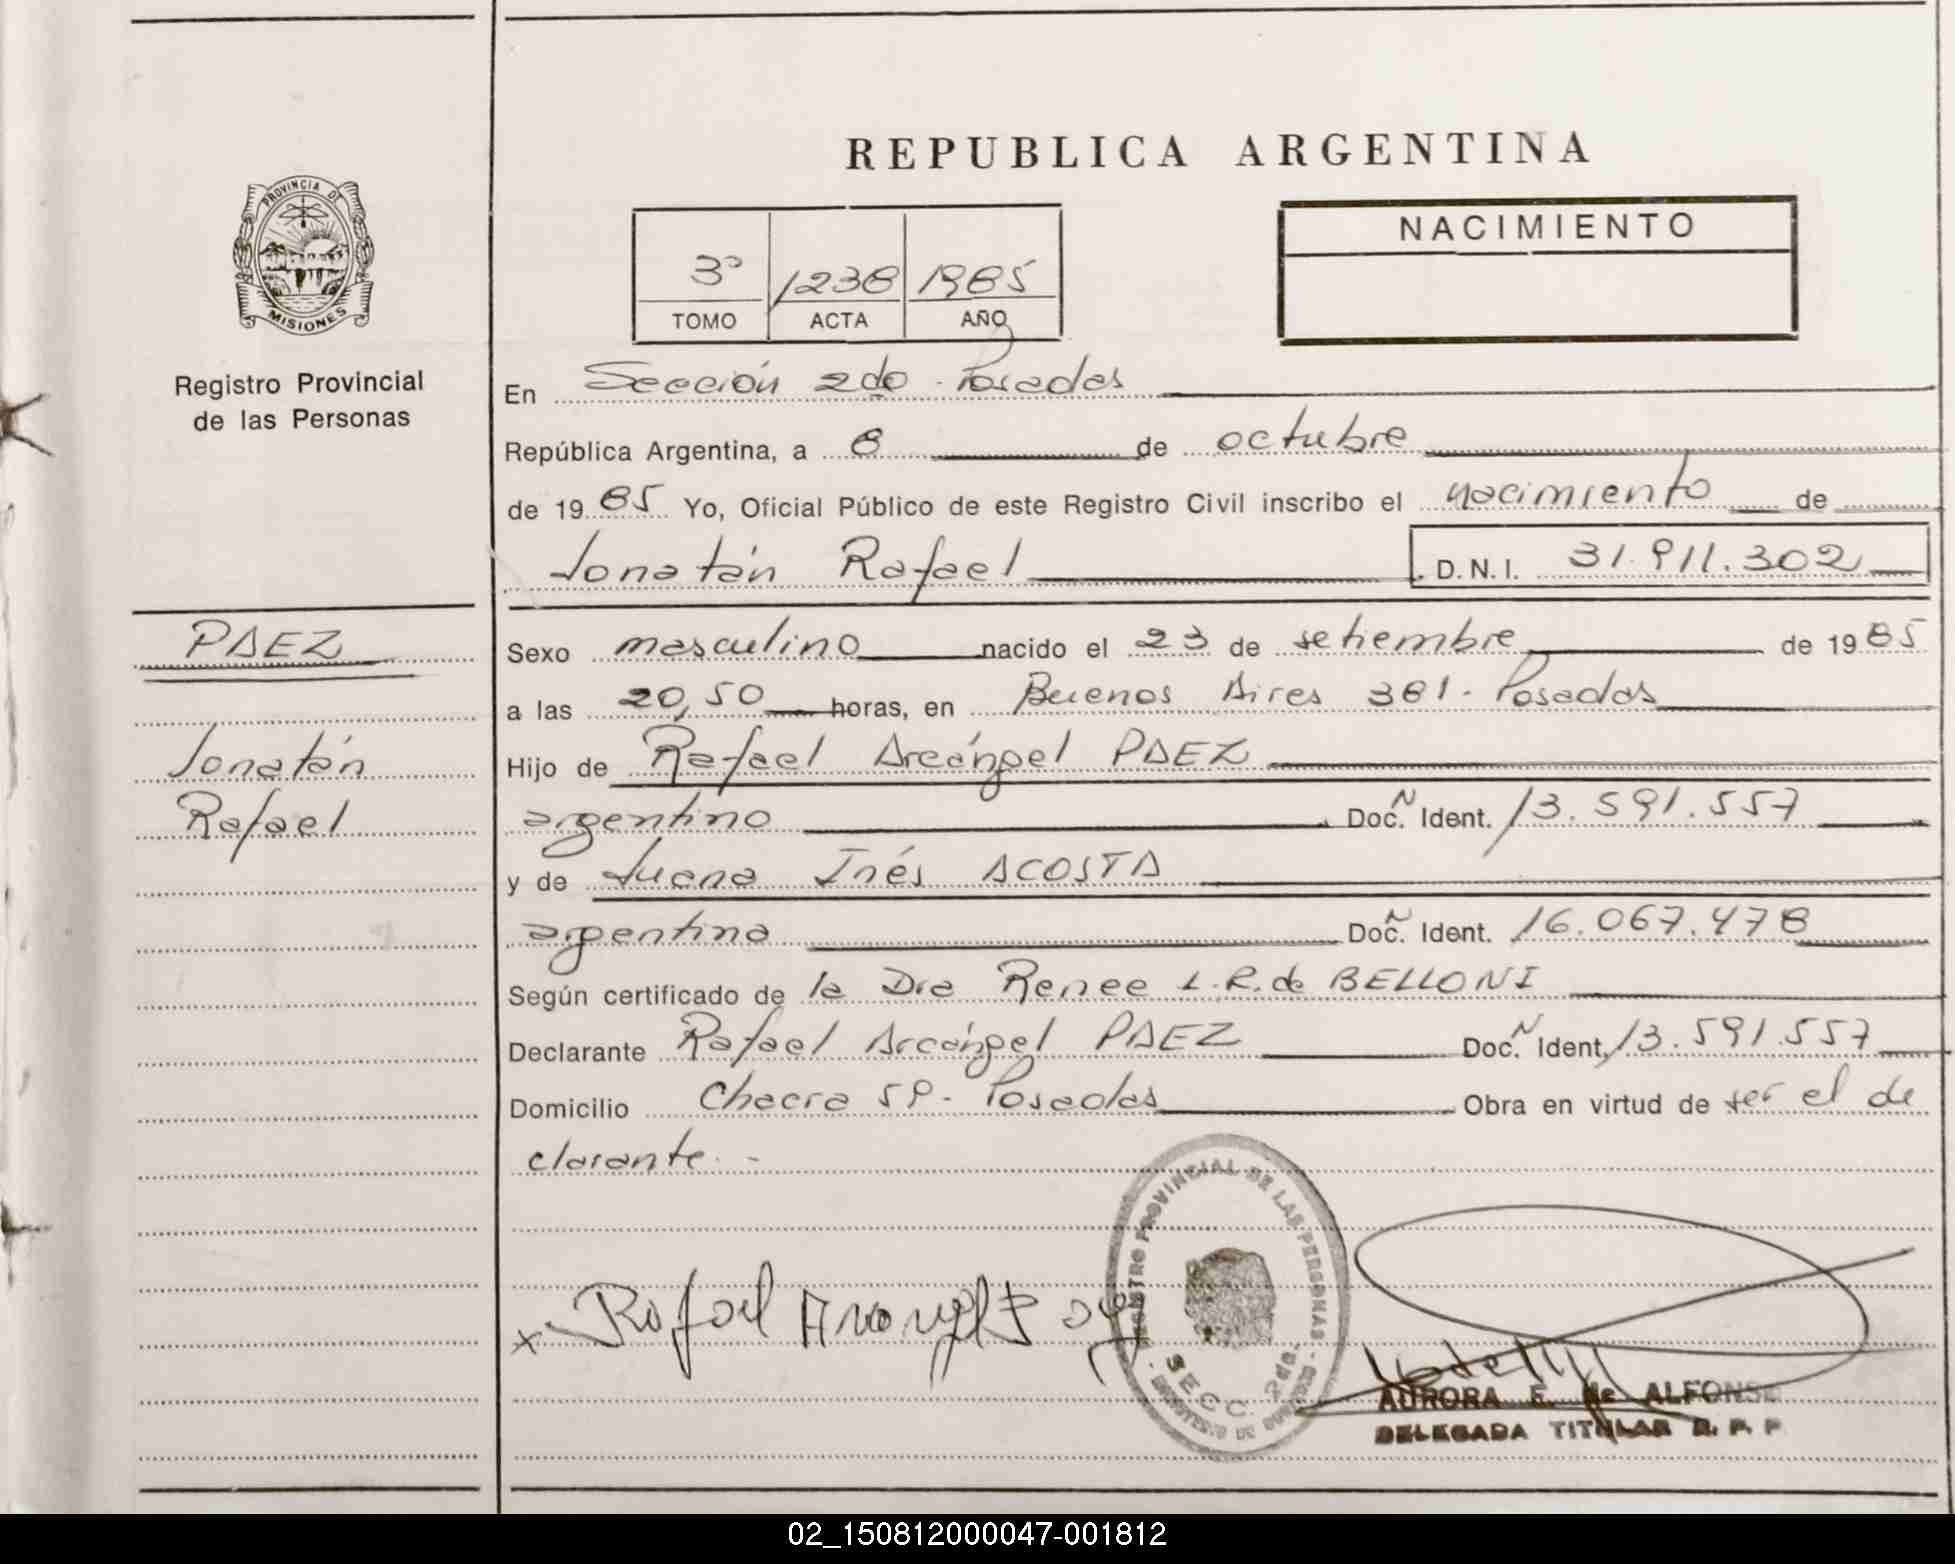 REPUBLICA ARGENTINA
PROVINCIA DE
MISIONES
Registro Provincial
de las Personas
NACIMIENTO
3º 1238 1985
TOMO ACTA AÑO
En Sección 2do - Posadas
República Argentina, a 8 de octubre
de 1985 Yo, Oficial Público de este Registro Civil inscribo el nacimiento de
Jonatán Rafael D.N.I. 31.911.302
PAEZ
Jonatán
Rafael
Sexo masculino nacido el 23 de setiembre de 1985
a las 20,50 horas, en Buenos Aires 381 - Posadas
Hijo de Rafael Arcángel PAEZ
argentino Doc. Ident. 13.591.557
y de Juana Inés ACOSTA
argentina Doc. Ident. 16.067.478
Según certificado de la Dra Renee L.R. de BELLONI
Declarante Rafael Arcángel PAEZ Doc. Ident. 13.591.557
Domicilio Chacra - Posadas Obra en virtud de ser el de
clarante. -
REGISTRO PROVINCIAL DE LAS PERSONAS
SECC. 2da.
MINISTERIO DE GOBIERNO
x Rafael
AURORA E. de ALFONSO
DELEGADA TITULAR R. P. P.
02_150812000047-001812